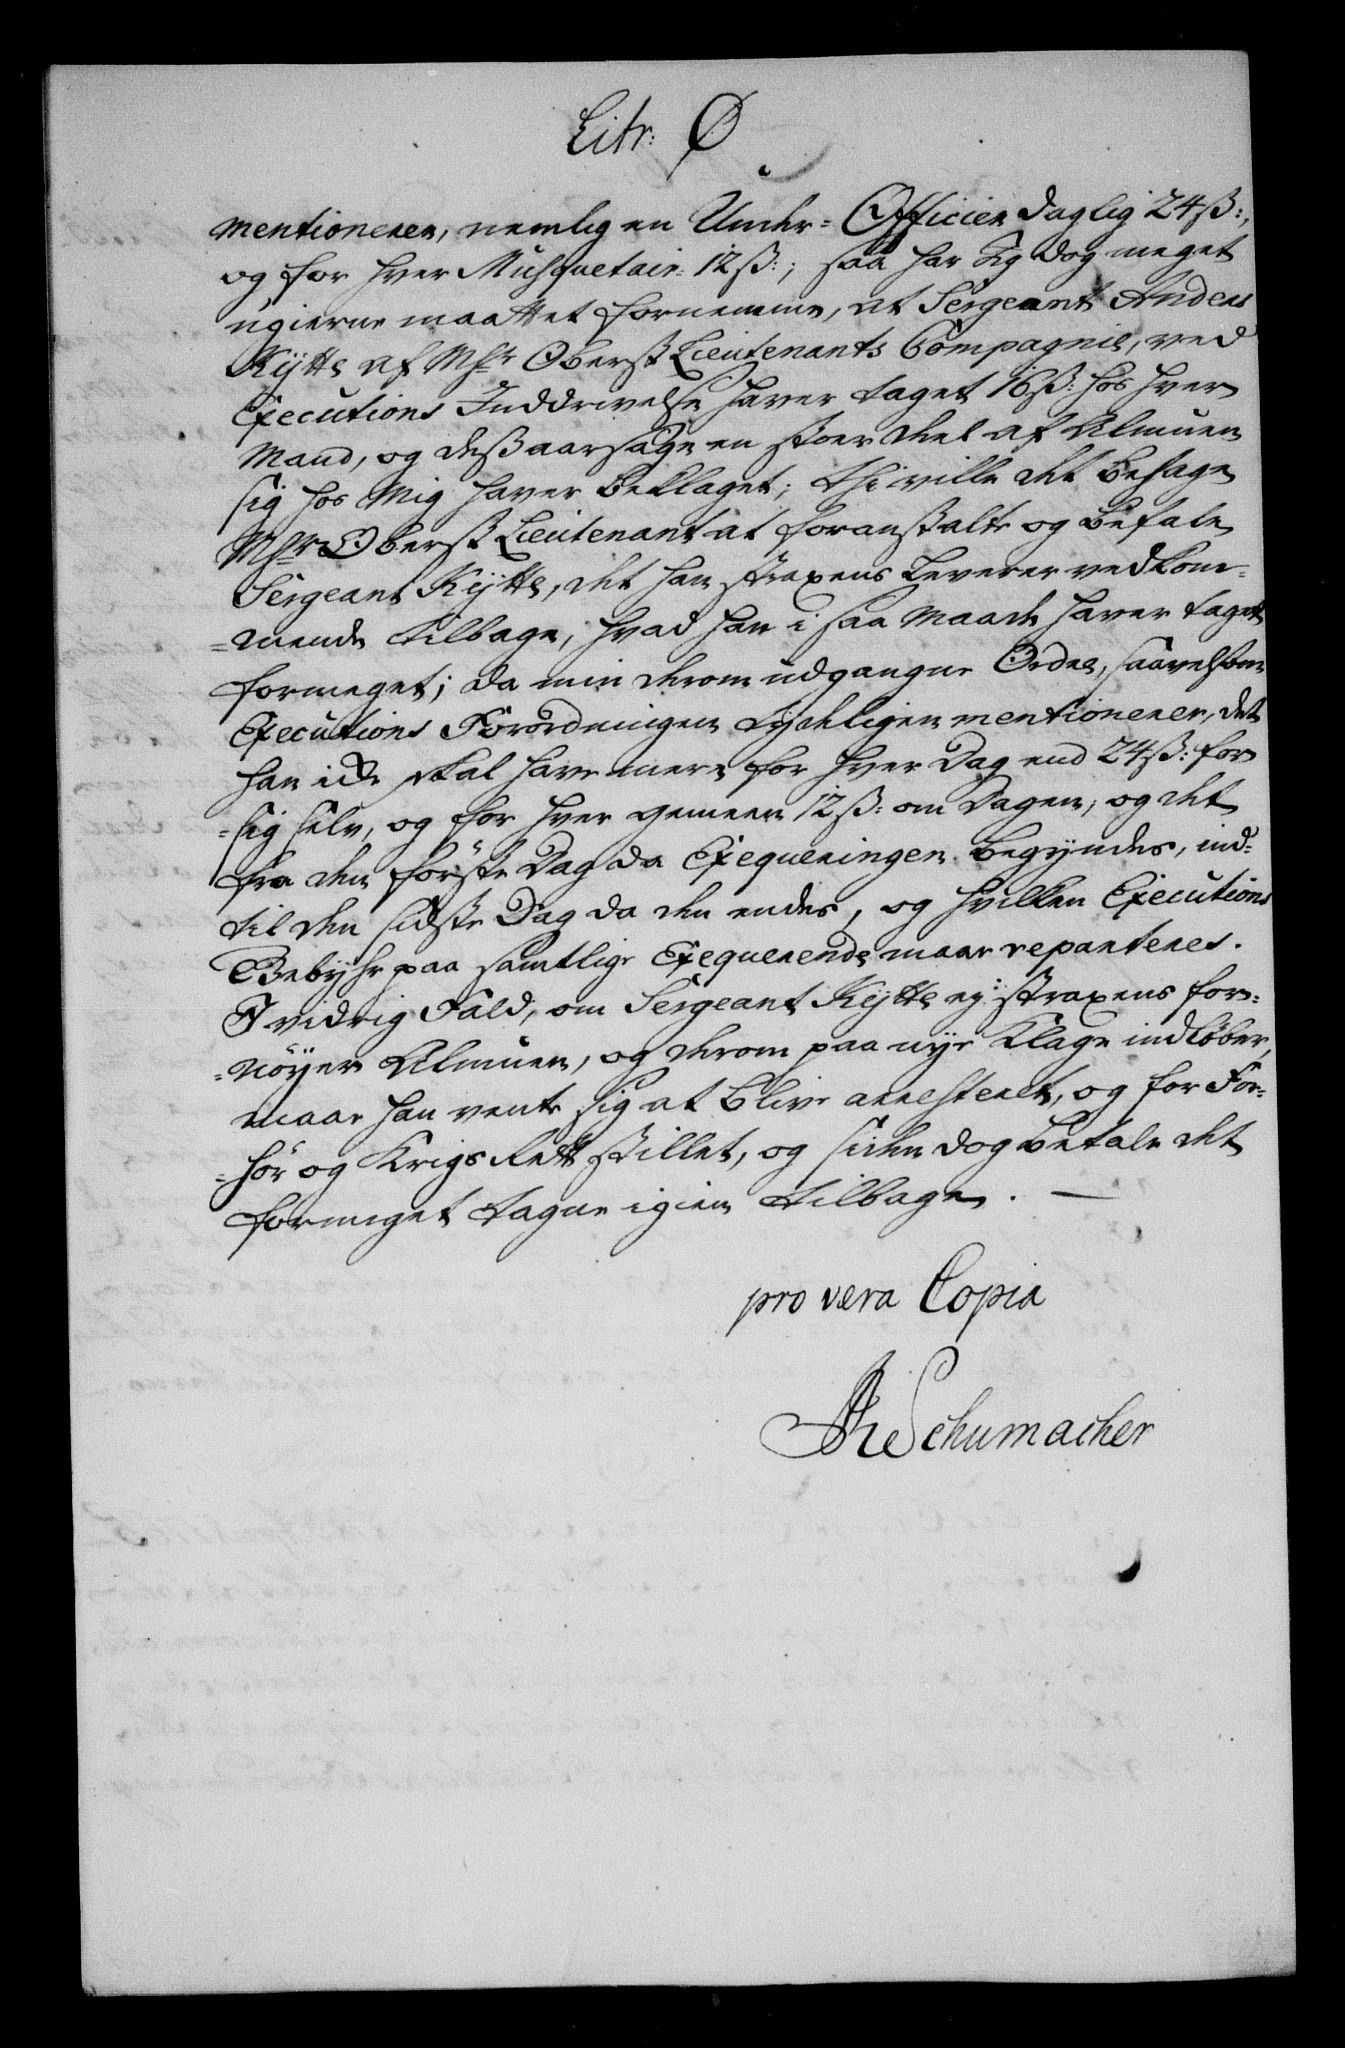 Litr: Ø
mentionerer, nemlig en Under= Officier daglig 24ß:,
og for hver Musquetair 12ß:; saa har Jeg dog meget
ugierne maattet fornemme, at Sergeant Anders
Kÿtte af Mhr Oberst Lieutenants Compagnie, ved
Executions Inddrivelse haver taget 16ß: hos hver
Mand, og dessaarsage en stoer deel af Almuen
sig hos Mig haver beklaget; thi ville det behage
Mhr Oberst Lieutenant at foranstalte og befale
Sergeant Kÿtte, det han straxens Leverer vedkom=
=mende tilbage, hvad han i saa maade haver taget
formeget; da min derom udgangne Ordre, saavelsom
Executions Forordningen tydeligen mentionerer, det
han icke skal have mere for hver Dag end 24ß: for
=sig selv, og for hver gemeen 12ß: om Dagen, og det
fra den förste Dag da Exequeringen begÿndes, ind=
til den sidste Dag da den endes, og hvilken Executions
Gebÿhr paa samtlige Exequerende maae reparteres.
I vidrig Fald, om Sergeant Kÿtte eÿ straxens for=
=nöÿer Almuen, og derom paa nÿe Klage indlöber,
maae han vente sig at blive arresteret, og for For=
=hör og Krigs Rett stillet, og siden dog betale det
formeget tagne igien tilbage. —
pro vera Copia
Schumacher